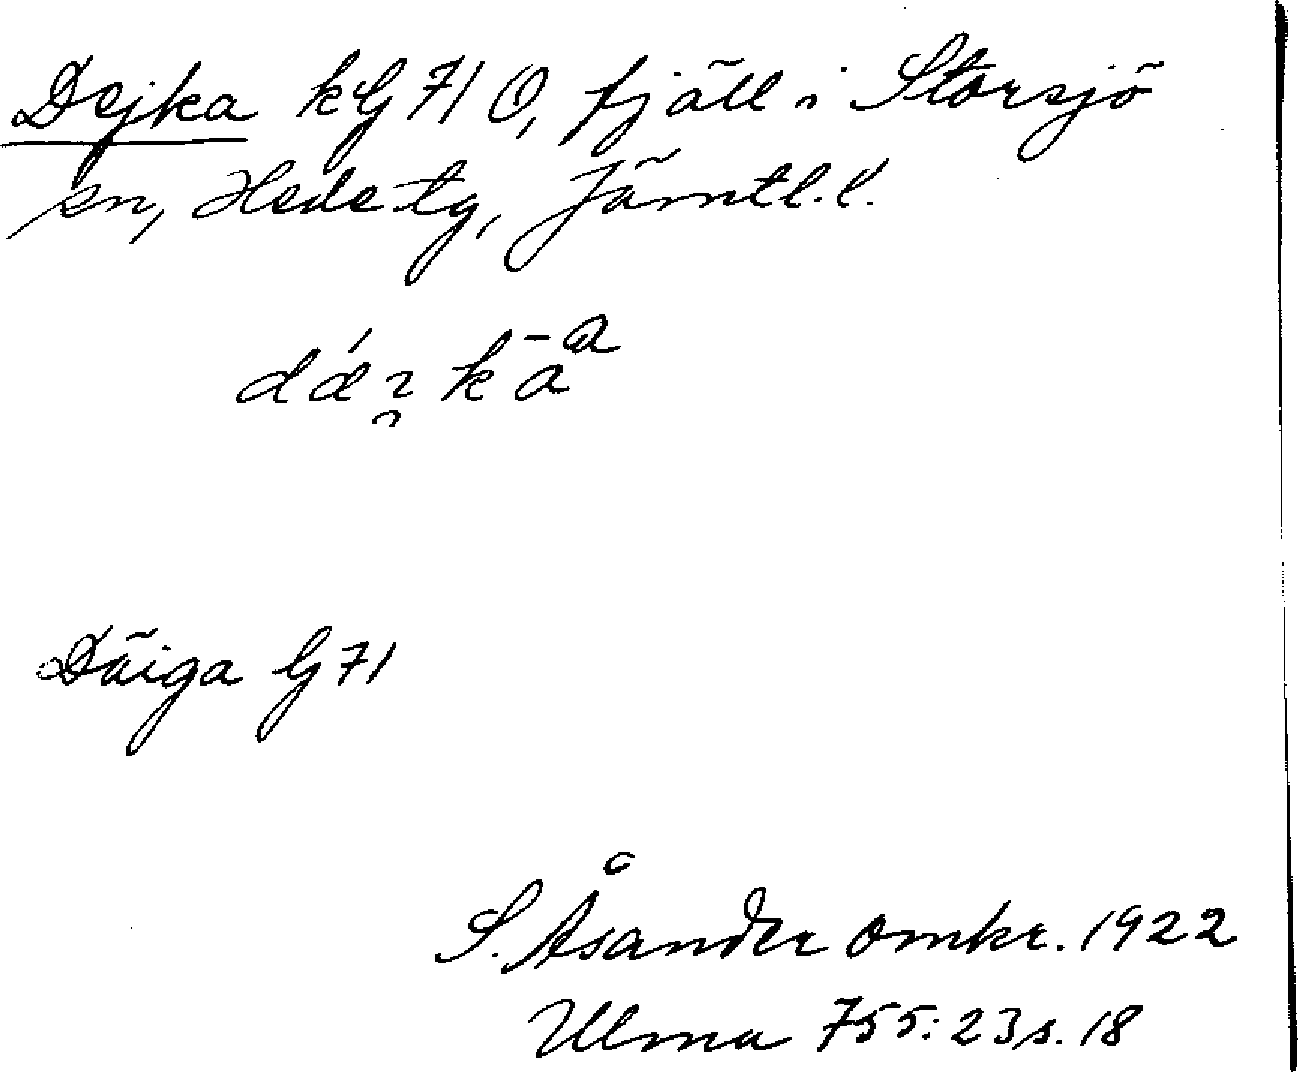 Dejka kG 71 O, fjäll i Storsjö
sn, Hede tg, Jämtl. l.
Däiga G 71
S. Åsander omkr. 1922
Ulma 755:23 s. 18